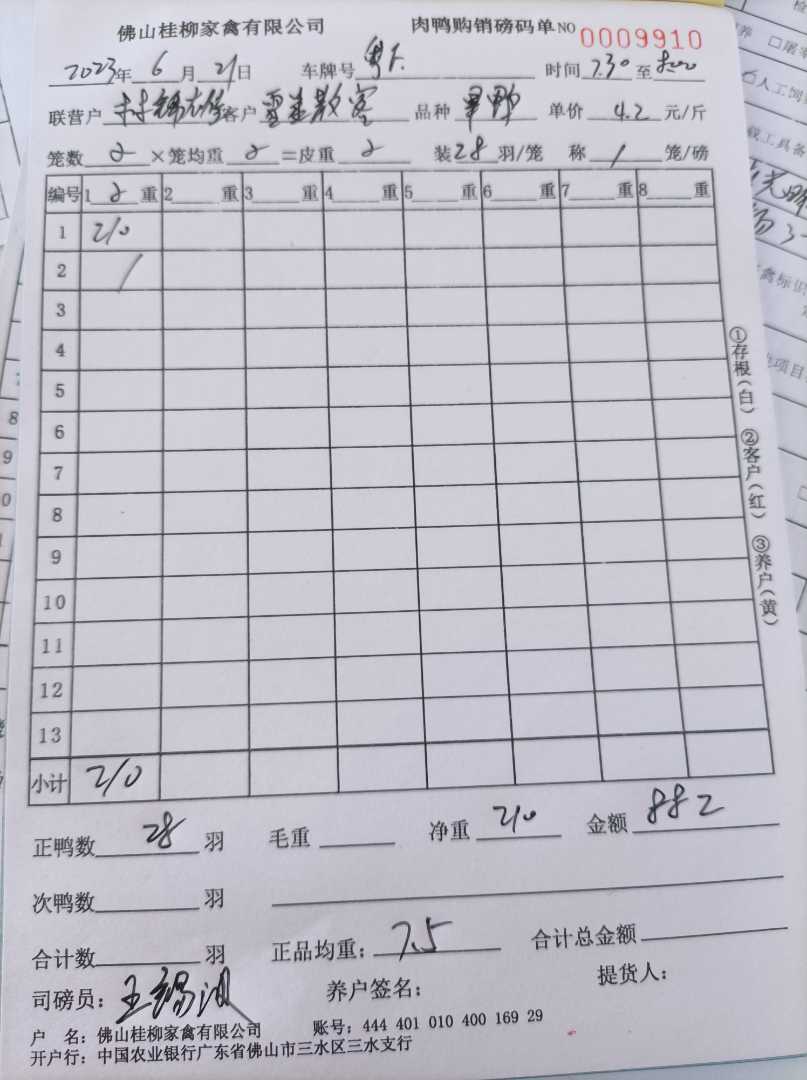 佛山桂柳家禽有限公司 肉鸭购销磅码单 NO 0009910
2023年 6月 21日 车牌号 粤 时间 7.30 至 8:00
联营户 林锦雄 客户 散客 品种 单价 4.2 元/斤
笼数 2 ×笼均重 2 =皮重 2 装 28 羽/笼 称 1 笼/磅
编号 1 2 重 2 重 3 重 4 重 5 重 6 重 7 重 8 重
1 210
2 /
3
4
5
6
7
8
9
10
11
12
13
小计 210
正鸭数 28 羽 毛重 净重 210 金额 882
次鸭数 羽
合计数 羽 正品均重: 7.5 合计总金额
司磅员: 王锡 养户签名: 提货人:
户 名: 佛山桂柳家禽有限公司 账号: 444 401 010 400 169 29
开户行: 中国农业银行广东省佛山市三水区三水支行
①存根(白) ②客户(红) ③养户(黄)